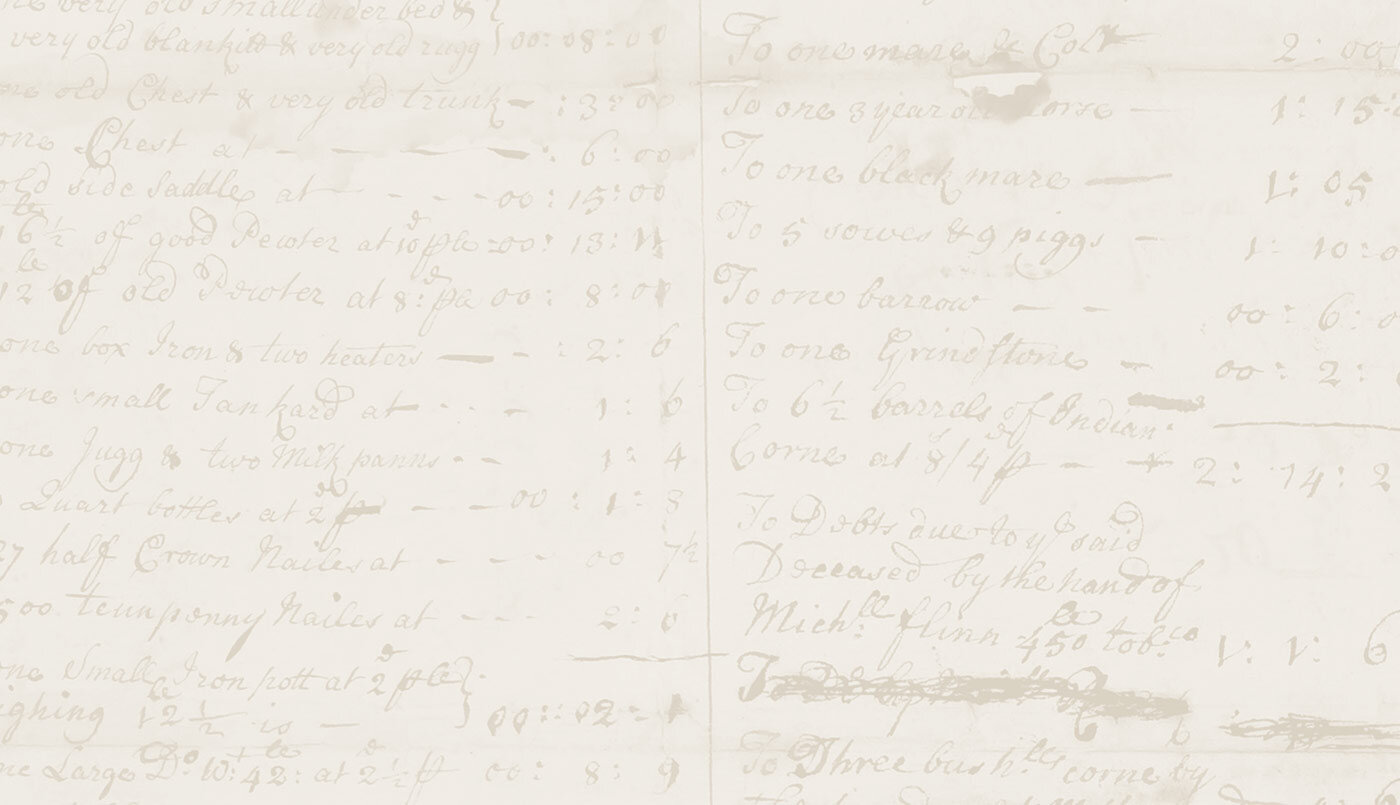 one very old small under bed &
very old blankitt & very old rugg } 00: 08: 00
one old Chest & very old trunk - : 3: 00
one Chest at - - - : 6: 00
old side Saddle at - - - - 00: 15: 00
16 1/2 le of good Pewter at 10 d p le 00: 13:
12 le of old Pewter at 8: d p le 00: 8: 00
one box Iron & two heaters - - : 2: 6
one small Tankard at - - - 1: 6
one Jugg & two Milk panns - - 1: 4
Quart bottles at 2 d p - - 00: 1: 8
27 half Crown Nailes at - - - 00 7 1/2
500 tennpenny Nailes at - - - 2: 6
one Small Iron pott at 2 d p le }
ighing 12 1/2 le is - } 00: 02: 1
one Large Do. wt. 42: le at 2 1/2 d p 00: 8: 9
To one mare & Colt 2: 00
To one 3 year old horse - 1: 15:
To one black mare - 1: 05
To 5 sowes & 9 piggs - 1: 10: 0
To one barrow - - 00: 6:
To one Grindstone - 00: 2:
To 6 1/2 barrels of Indian
Corne at 8/4 d p - - 2: 14: 2
To Debts due to ye said
Deceased by the hand of
Mich:ll flinn 450 le tobco 1: 1: 6
To
To Three bushlls corne by